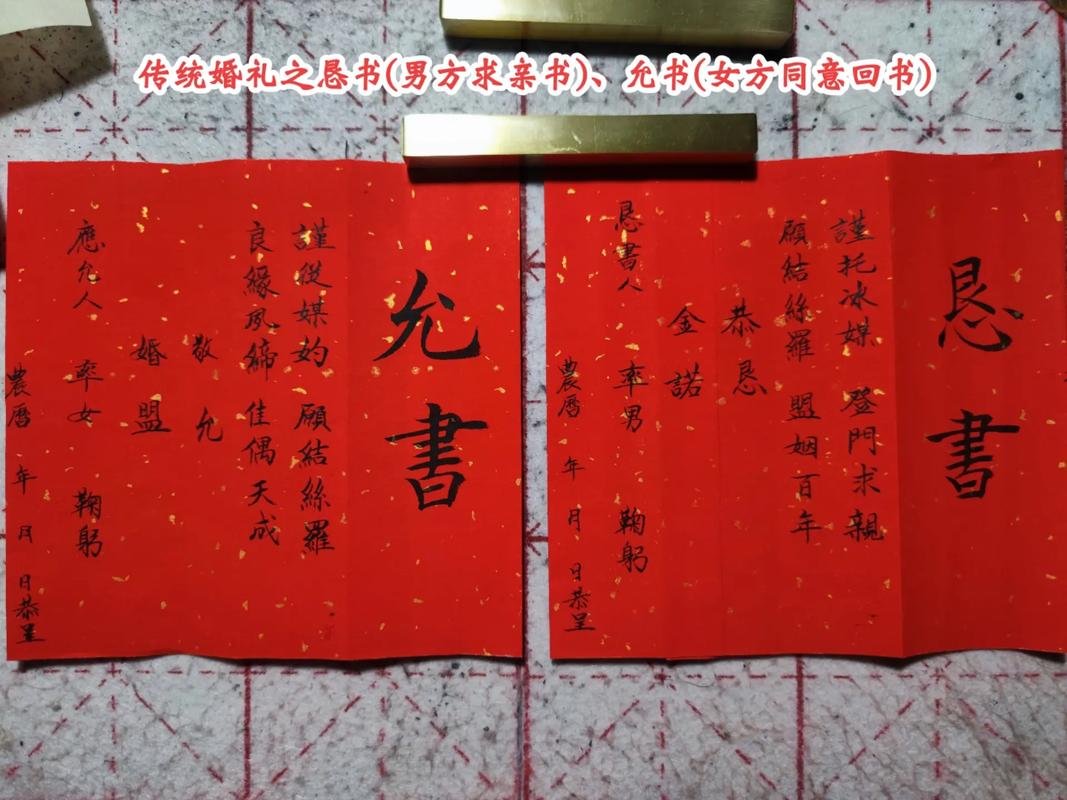 传统婚礼之恳书(男方求亲书)、允书(女方同意回书)
恳書
謹托冰媒 登門求親
願結絲羅 盟姻百年
恭恳
金諾
恳書人 率男 鞠躬
農曆 年 月 日恭呈
允書
謹從媒妁 願結絲羅
良緣夙締 佳偶天成
敬允
婚盟
應允人 率女 鞠躬
農曆 年 月 日恭呈